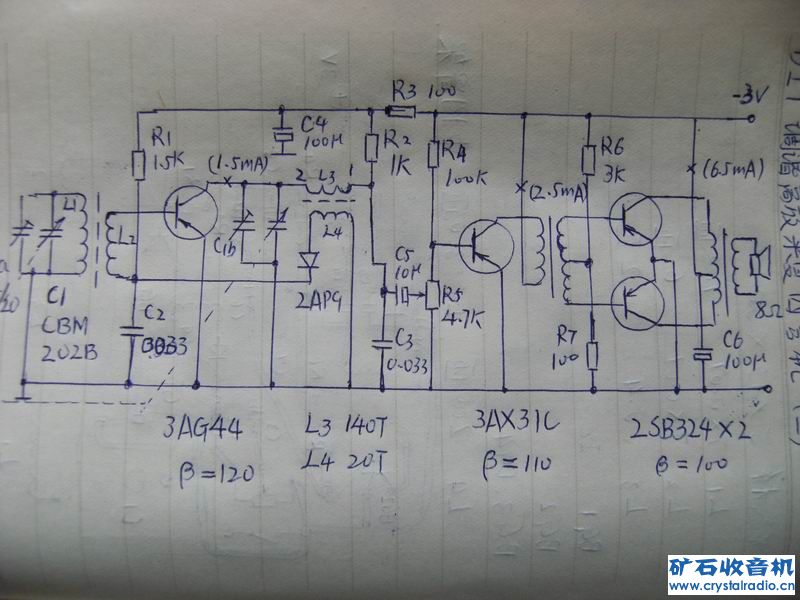 R3 100
-3V
R1
1.5K
(1.5mA)
C4
100μ
2 L3 1
R2
1K
R4
100K
R6
3K
(2.5mA)
(6.5mA)
L1
L2
C1b
L4
C5
10μ
R5
4.7K
C1
CBM
202B
C2
2AP9
C3
0.033
R7
100
C6
100μ
8Ω
3AG44
β=120
L3 140T
L4 20T
3AX31C
β=110
2SB324×2
β=100
矿石收音机
www.crystalradio.cn